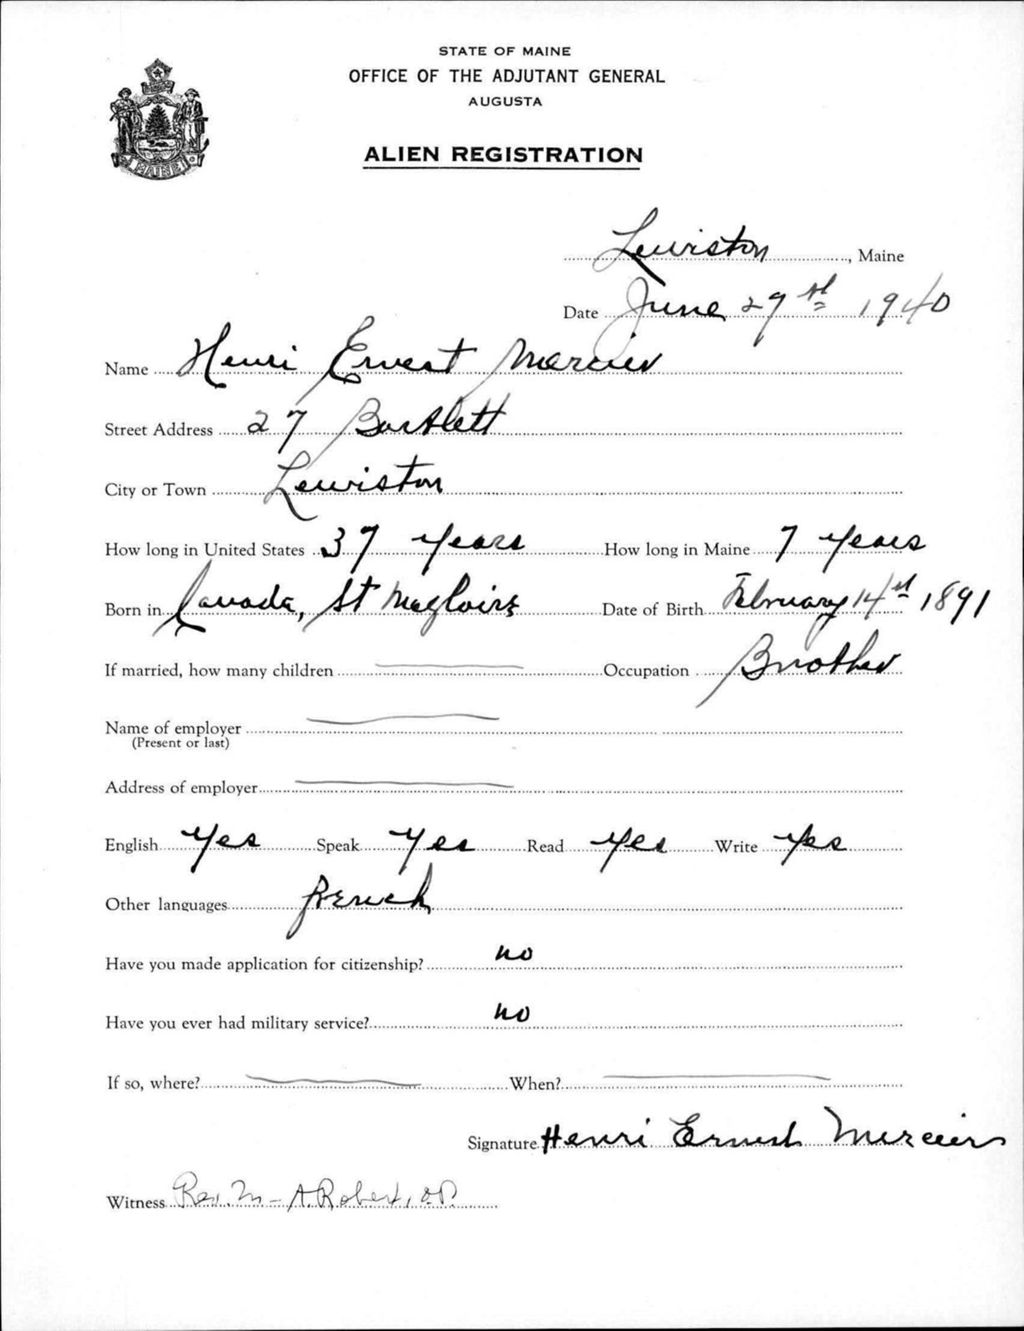 STATE OF MAINE
OFFICE OF THE ADJUTANT GENERAL
AUGUSTA
ALIEN REGISTRATION
MAINE
Lewiston, Maine
Date June 29st 1940
Name Henri Ernest Mercier
Street Address 27 Bartlett
City or Town Lewiston
How long in United States 37 years How long in Maine 7 years
Born in Canada, St Magloire Date of Birth February 14st 1891
If married, how many children Occupation Brother
Name of employer
(Present or last)
Address of employer
English Yes Speak Yes Read Yes Write Yes
Other languages French
Have you made application for citizenship? no
Have you ever had military service? no
If so, where? When?
Signature Henri Ernest Mercier
Witness Rev. M-A. Robert, O.P.